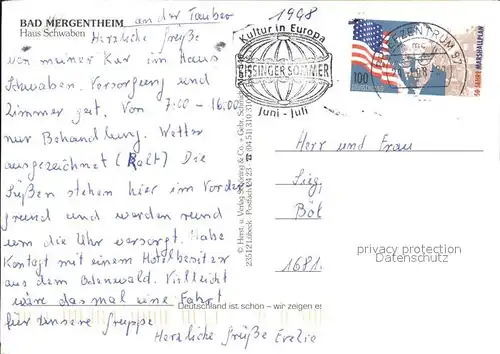 BAD MERGENTHEIM an der Tauber
Haus Schwaben
1998
Herzliche Grüße
von meiner Kur im Haus
Schwaben. Versorgung und
Zimmer gut. Von 7:00 - 16:00
nur Behandlung. Wetter
ausgezeichnet (kalt) Die
Füßen stehen hier im Vorder
grund und werden rund
um die Uhr versorgt. Habe
Kontagt mit einem Hotelbesitzer
aus dem Odenwald. Vielleicht
wäre das mal eine Fahrt
für unsere Gruppe
Herzliche Grüße
Deutschland ist schön – wir zeigen es
© Horst. u. Verlag Schöning & Co. + Gebr. Schmidt
23512 Lübeck · Postfach 24 23 ☎ (04 51) 310
Kultur in Europa
KISSINGER SOMMER
Juni - Juli
BRIEFZENTRUM 97
mc
100
50 JAHRE MARSHALLPLAN
Herr und Frau
Sieg
Böl
1681
privacy protection
Datenschutz